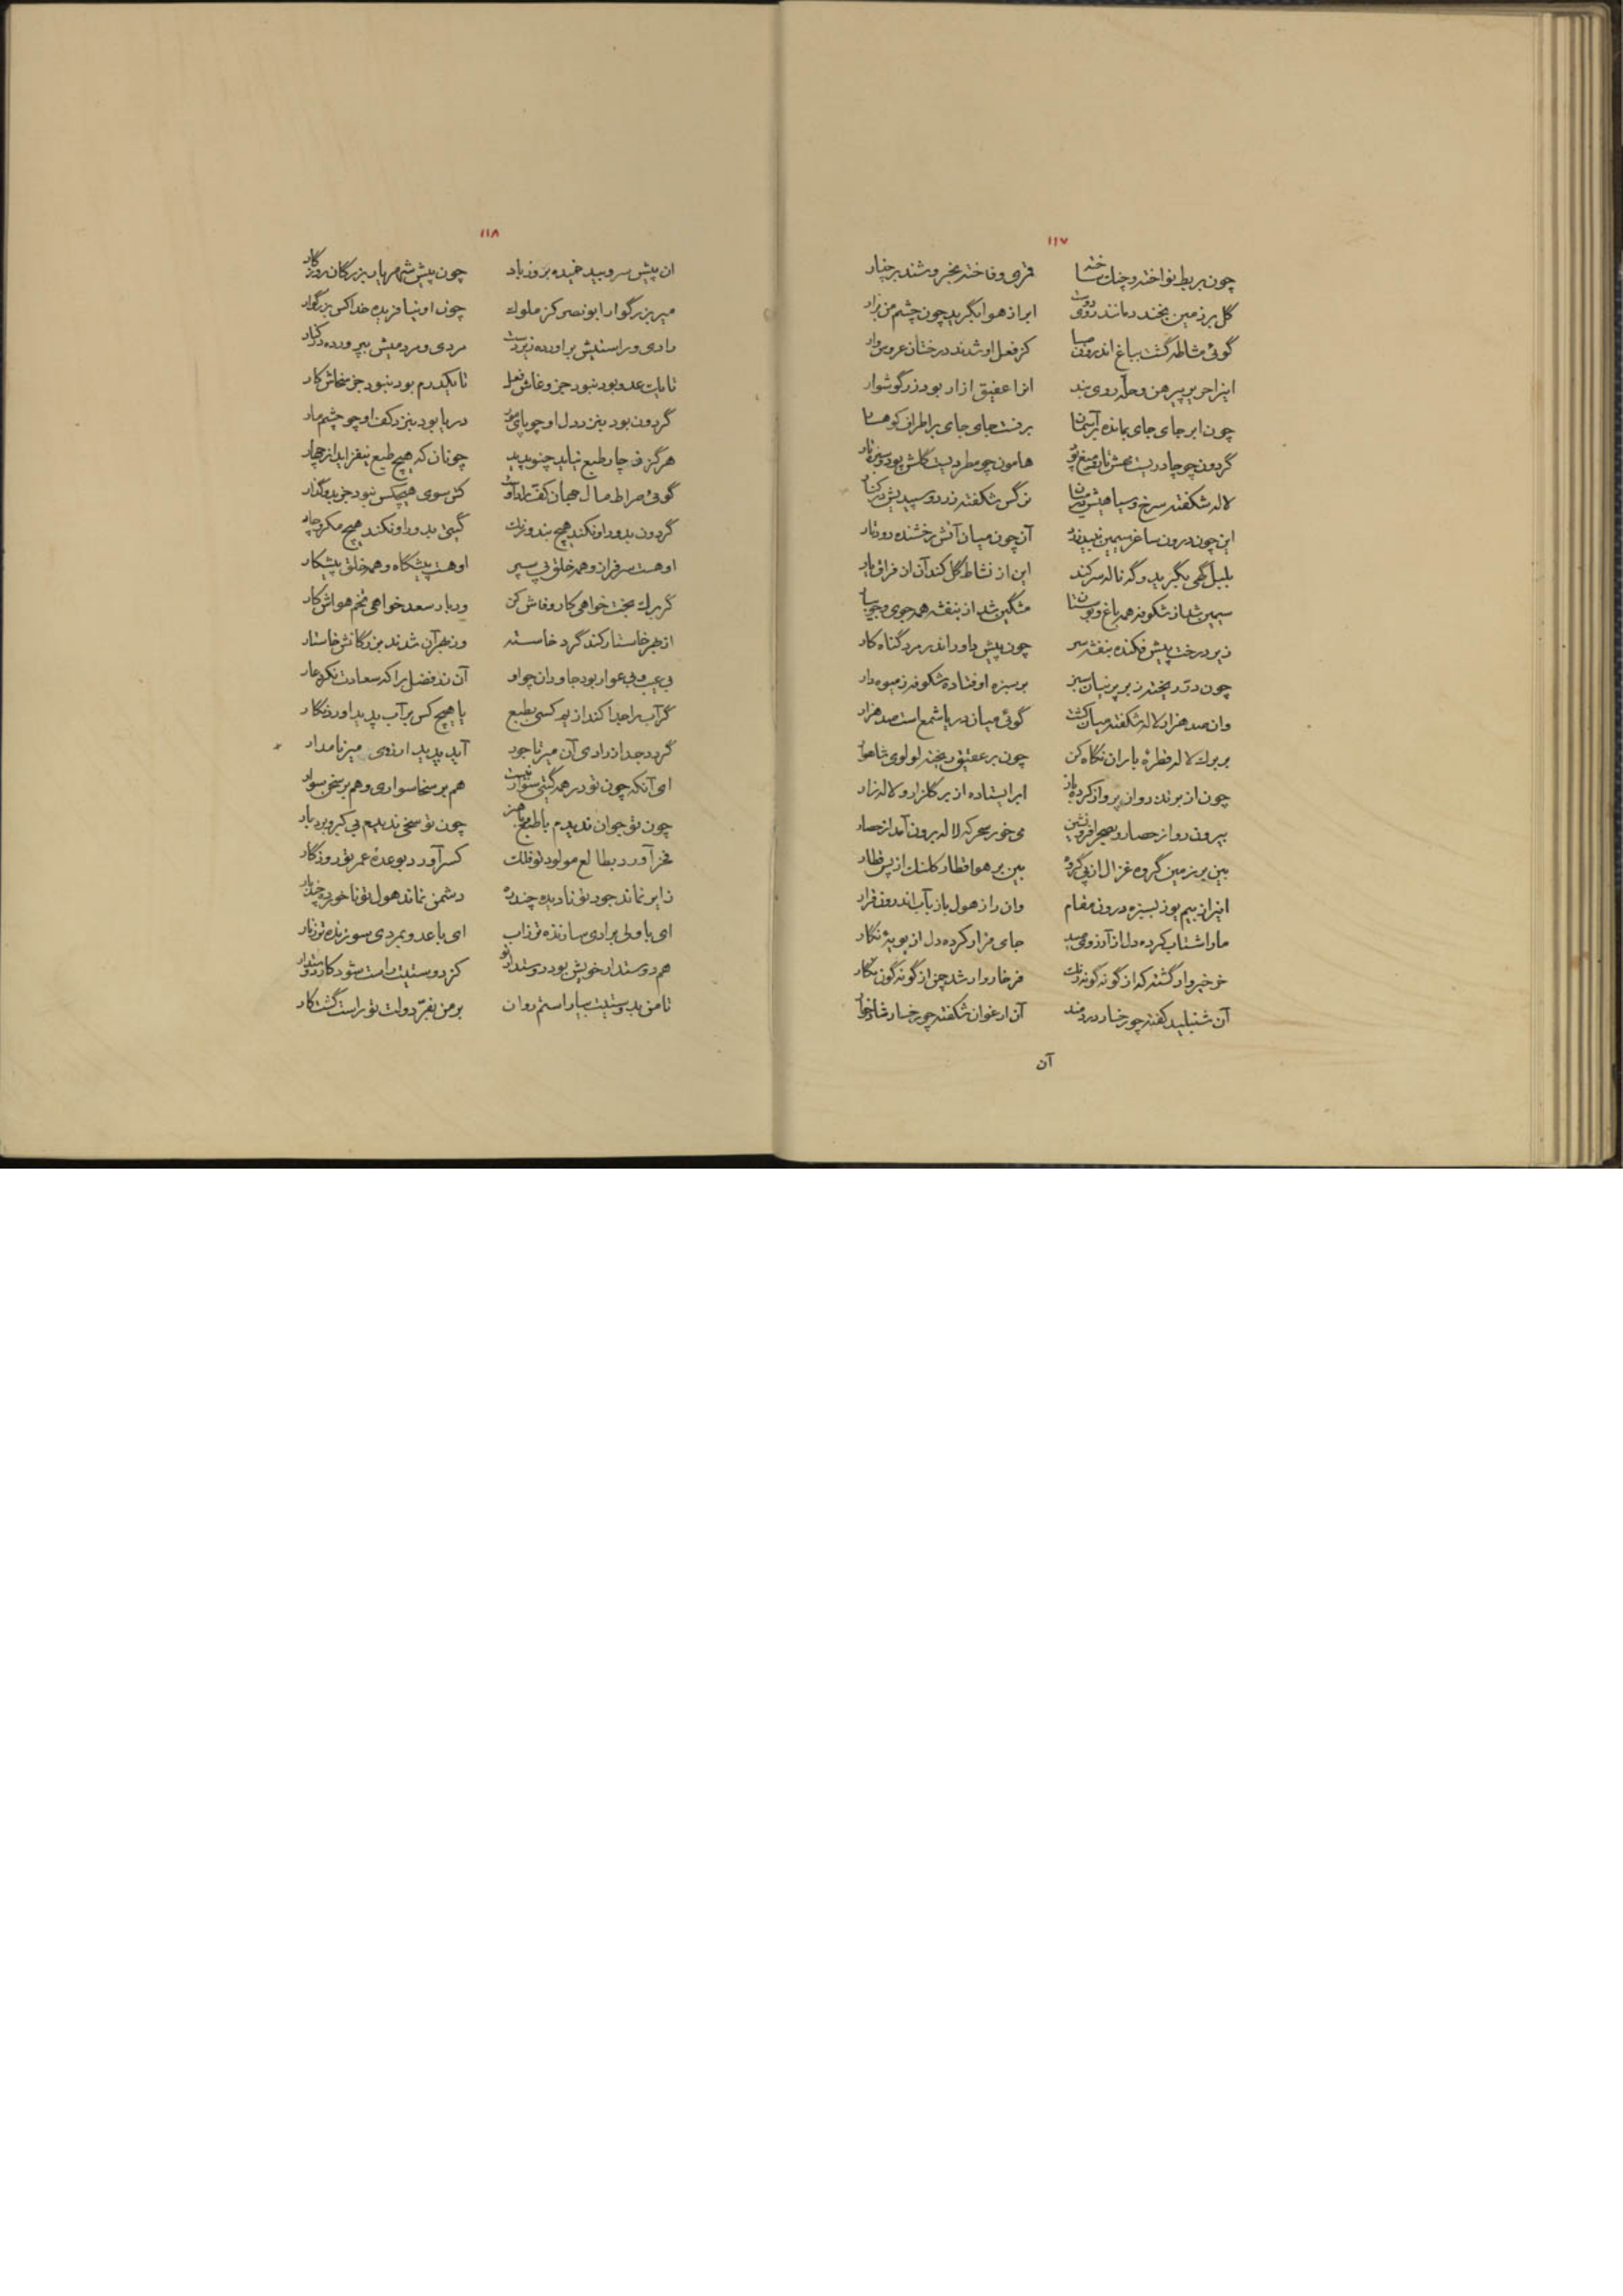 ۱۱۷
چون بربط نواخته و چنک ساخته قمری و فاخته بخروشند بر چنار
گل بر زمین بخندد مانند روی دوست ابر از هوا بگرید چون چشم من بزار
گوئی مشاطه گشت بباغ اندرون صبا کز فعل او شدند درختان عروس وار
اینرا حریر پیرهن و حله روی بند انرا عقیق ازار بود زر گوشوار
چون ابر جای جای بمانده بر آسمان برفست جای جای بر اطراف کوهسار
گردون چو چادریست هش تار و میغ پود هامون چو مطردیست گلش پود و سبزه تار
لاله شکفته سرخ و سیاهیش در میان نرگس شکفته زرد و سپیدیش در کنار
این چون درون ساغر سیمین نبید زرد آن چون میان آتش رخشنده دود تار
بلبل گهی بگرید و گه ناله سر کند این از نشاط گل کند آن از فراق یار
سیمین شد از شکوفه همه باغ و بوستان مشگین شد از بنفشه همه جوی و جویبار
زیر درخت پیش فکنده بنفشه سر چون پیش داور اندر مرد گناه کار
چون درّ ریخته ز بر پرنیان سبز بر سبزه اوفتاده شکوفه ز میوه دار
وان صد هزار لاله شکفته میان کشت گوئی میان دریا شمع است صد هزار
بر برک لاله قطرۀ باران نگاه کن چون بر عقیق ریخته لولوی شاهوار
چون از برنده روان پرواز کرده باز ابر ایستاده از بر گلزار و لاله زار
بیرون رو از حصار و بصحرا فرو نشین می خور سحر که لاله برون آمد از حصار
بین بر زمین گروه غزال از پی گروه بین بر هوا قطار کلنک از پس قطار
اینرا ز بیم یوز بسبزه درون مقام وان را ز هول باز بآب اندرون قرار
ما را شتاب کرده دل از آرزوی صید جای مزار کرده دل از بویۀ نگار
خرخیز وار گشته که از گونه گونه رنک فرخار وار شد چمن از گونه گون نگار
آن شنبلید کفته چو رخسار دردمند آن ارغوان شکفته چو رخسار شادخوار
آن
۱۱۸
ان پیش سرو بید خمیده بروز باد چون پیش شهریار بزرگان روزگار
میر بزرگوار ابونصر کز ملوک چون او نیافریده خدا کس بزرگوار
رادی و راستیش براورده زیر دست مردی و مردمیش بپرورده در کنار
تا یک عدو بود نبود جز وغاش فعل تا یکدرم بود نبود جز سخاش کار
گردون بود بنزد دل او چو پای مور دریا بود بنزد کف او چو چشم مار
هرگز ز چار طبع نیاید چنو پدید چونان که هیچ طبع نیفزاید از چهار
گوئی صراط مال جهان کف راد اوست کش سوی هیچکس نبود جز بدو گذار
گردون بدور او نکند هیچ بند و نیرنگ گیتی بدور او نکند هیچ مکر و چار
او هست سرفراز و همه خلق پی سپر او هست پیشگاه و همه خلق پیشکار
گر برک بخت خواهی کار وفاش کن ور بار سعد خواهی تخم هواش کار
از بهر خاستار کند گرد خاسته وز بهر آن شدند بزرگانش خاستار
بی عیب و بی عوار بود جاودان چو او آن ند فضل را که سعادت نکرد عار
گر آب را جدا کند از نم کسی بطبع یا هیچ کس بر آب پدید اورد نگار
گردد جدا ز رادی آن میر تاجور آید پدید ارزوی میر نامدار
ای آنکه چون تو در همه گیتی سوار نیست هم بر سخا سواری و هم بر سخن سوار
چون تو جوان ندیدم با طبع هنر چون تو سخی ندیدم بی کبر و بردبار
فخر آورد بطالع مولود تو فلک کسر آورد بوعدۀ عمر تو روزگار
زایر نماند جود تو نادیده چند ره دشمن نماند هول تو ناخورده چند بار
ای با ولی برادی سازنده تر ز آب ای با عدو بمردی سوزنده تر ز نار
هم دوستدار خویش بود دوستدار تو کز دوستیت راست شود کار دوستدار
تا من بدوستیت بیاراستم روان بر من بفرّ دولت تو راست گشت کار